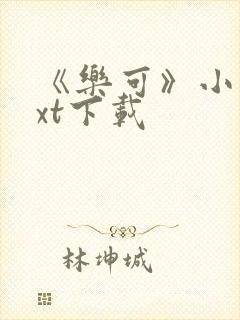 《樂可》小
xt下載
林坤城